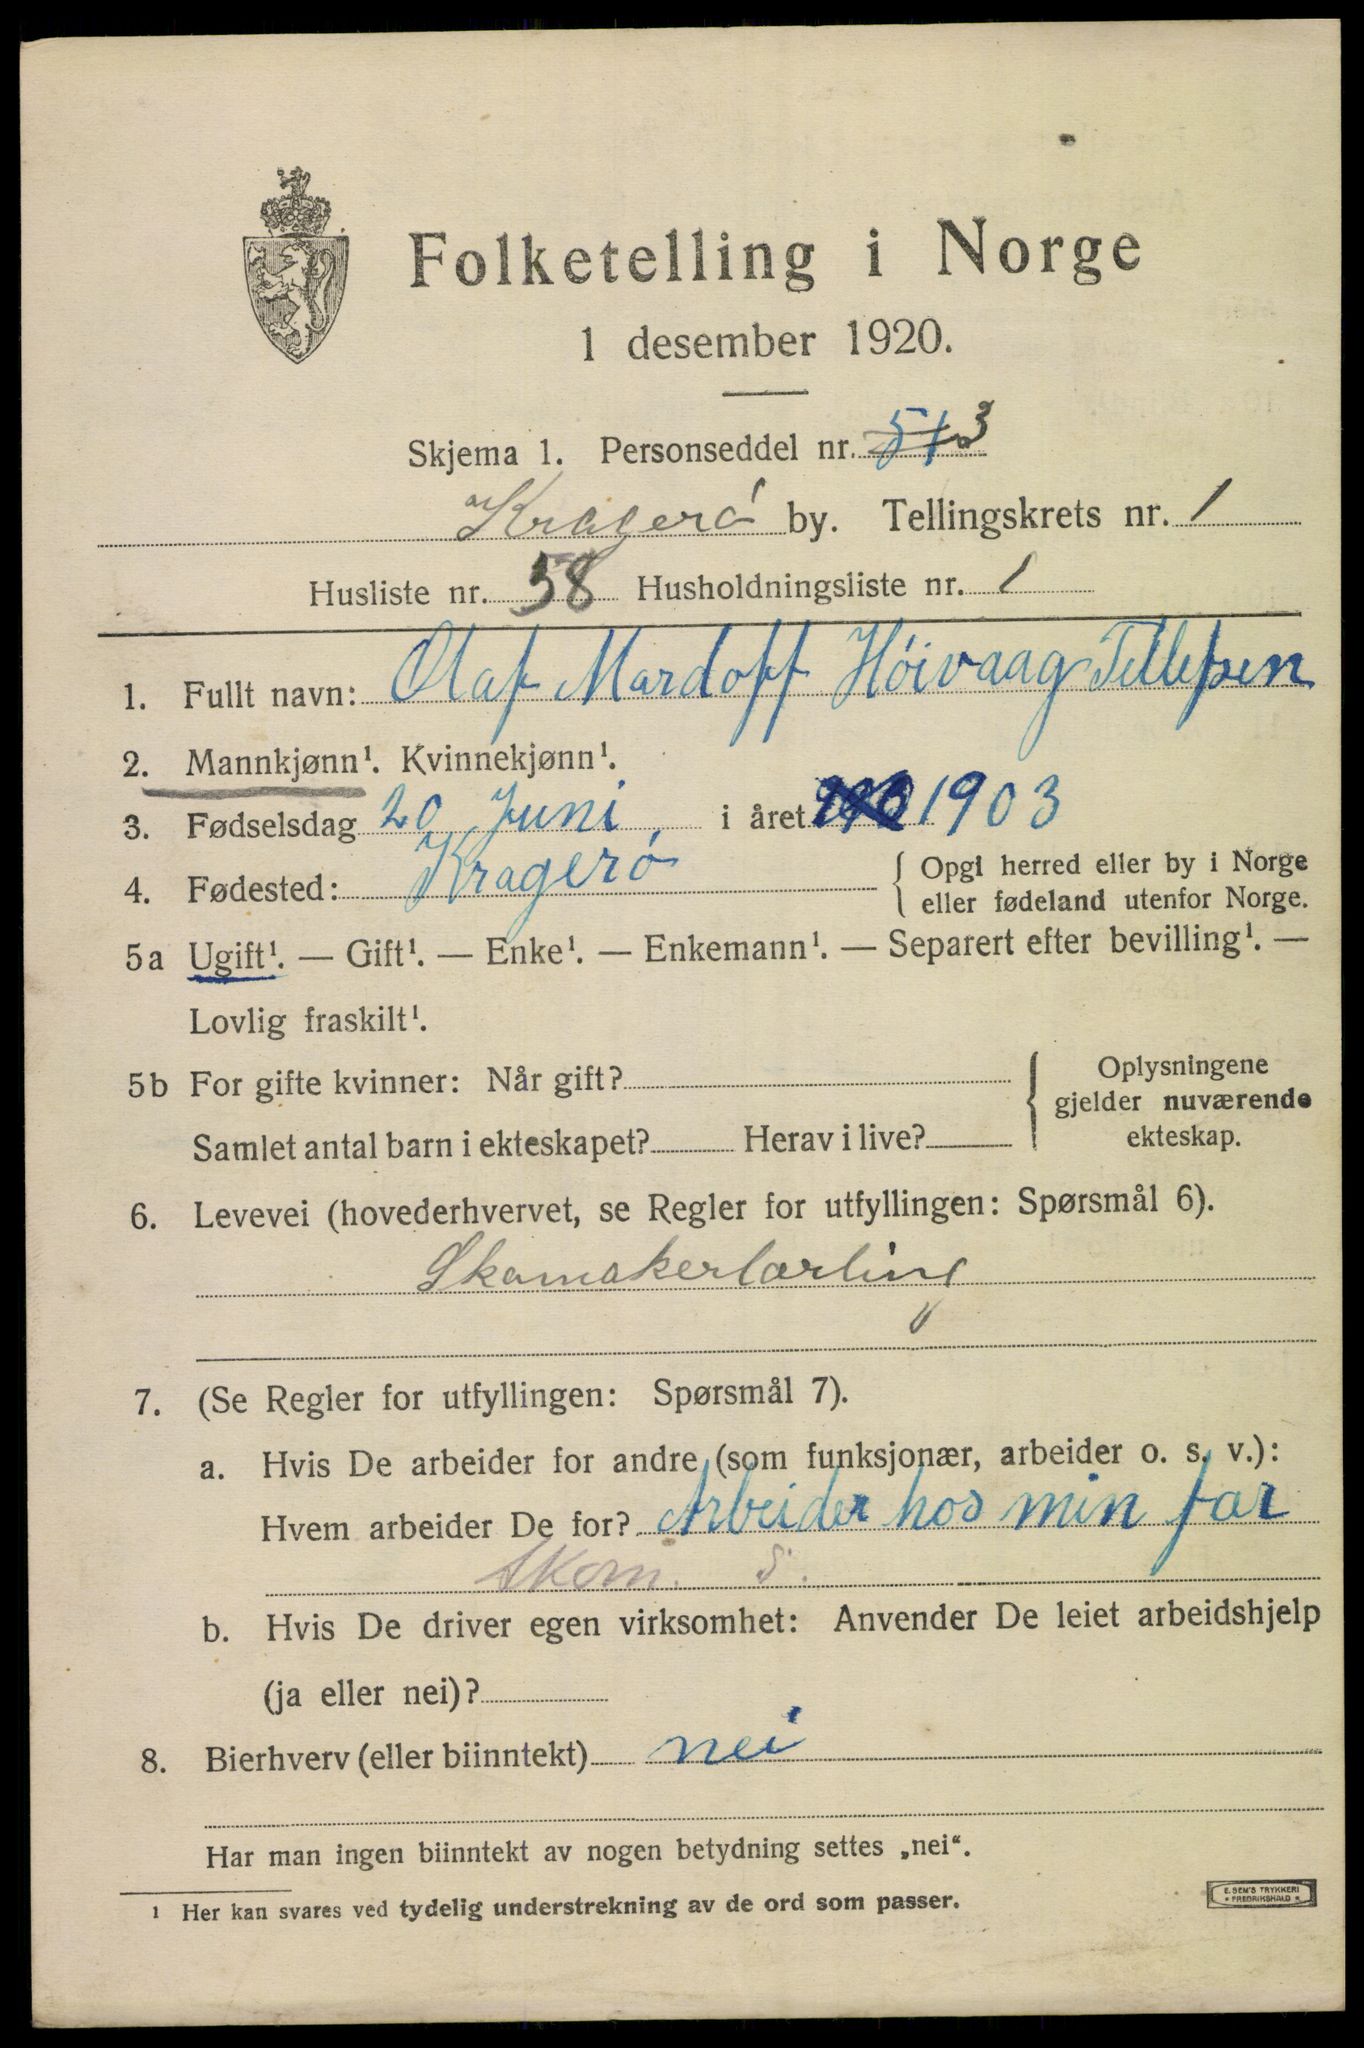 Folketelling i Norge
1 desember 1920.
Skjema 1. Personseddel nr. 513
Kragerø by. Tellingskrets nr. 1
Husliste nr. 58 Husholdningsliste nr. 1
1. Fullt navn: Olaf Mardoff Höivaag Tellefsen
2. Mannkjønn¹. Kvinnekjønn¹.
3. Fødselsdag 20 Juni i året 1903
4. Fødested: Kragerö { Opgi herred eller by i Norge
eller fødeland utenfor Norge.
5a Ugift¹. — Gift¹. — Enke¹. — Enkemann¹. — Separert efter bevilling¹. —
Lovlig fraskilt¹.
5b For gifte kvinner: Når gift?
Samlet antal barn i ekteskapet? Herav i live?
Oplysningene
gjelder nuværende
ekteskap.
6. Levevei (hovederhvervet, se Regler for utfyllingen: Spørsmål 6).
Skomakerlærling
7. (Se Regler for utfyllingen: Spørsmål 7).
a. Hvis De arbeider for andre (som funksjonær, arbeider o. s. v.):
Hvem arbeider De for? Arbeider hos min far
Skom. S.
b. Hvis De driver egen virksomhet: Anvender De leiet arbeidshjelp
(ja eller nei)?
8. Bierhverv (eller biinntekt) nei
Har man ingen biinntekt av nogen betydning settes „nei“.
¹ Her kan svares ved tydelig understrekning av de ord som passer.
E. SEM'S TRYKKERI
* FREDRIKSHALD *